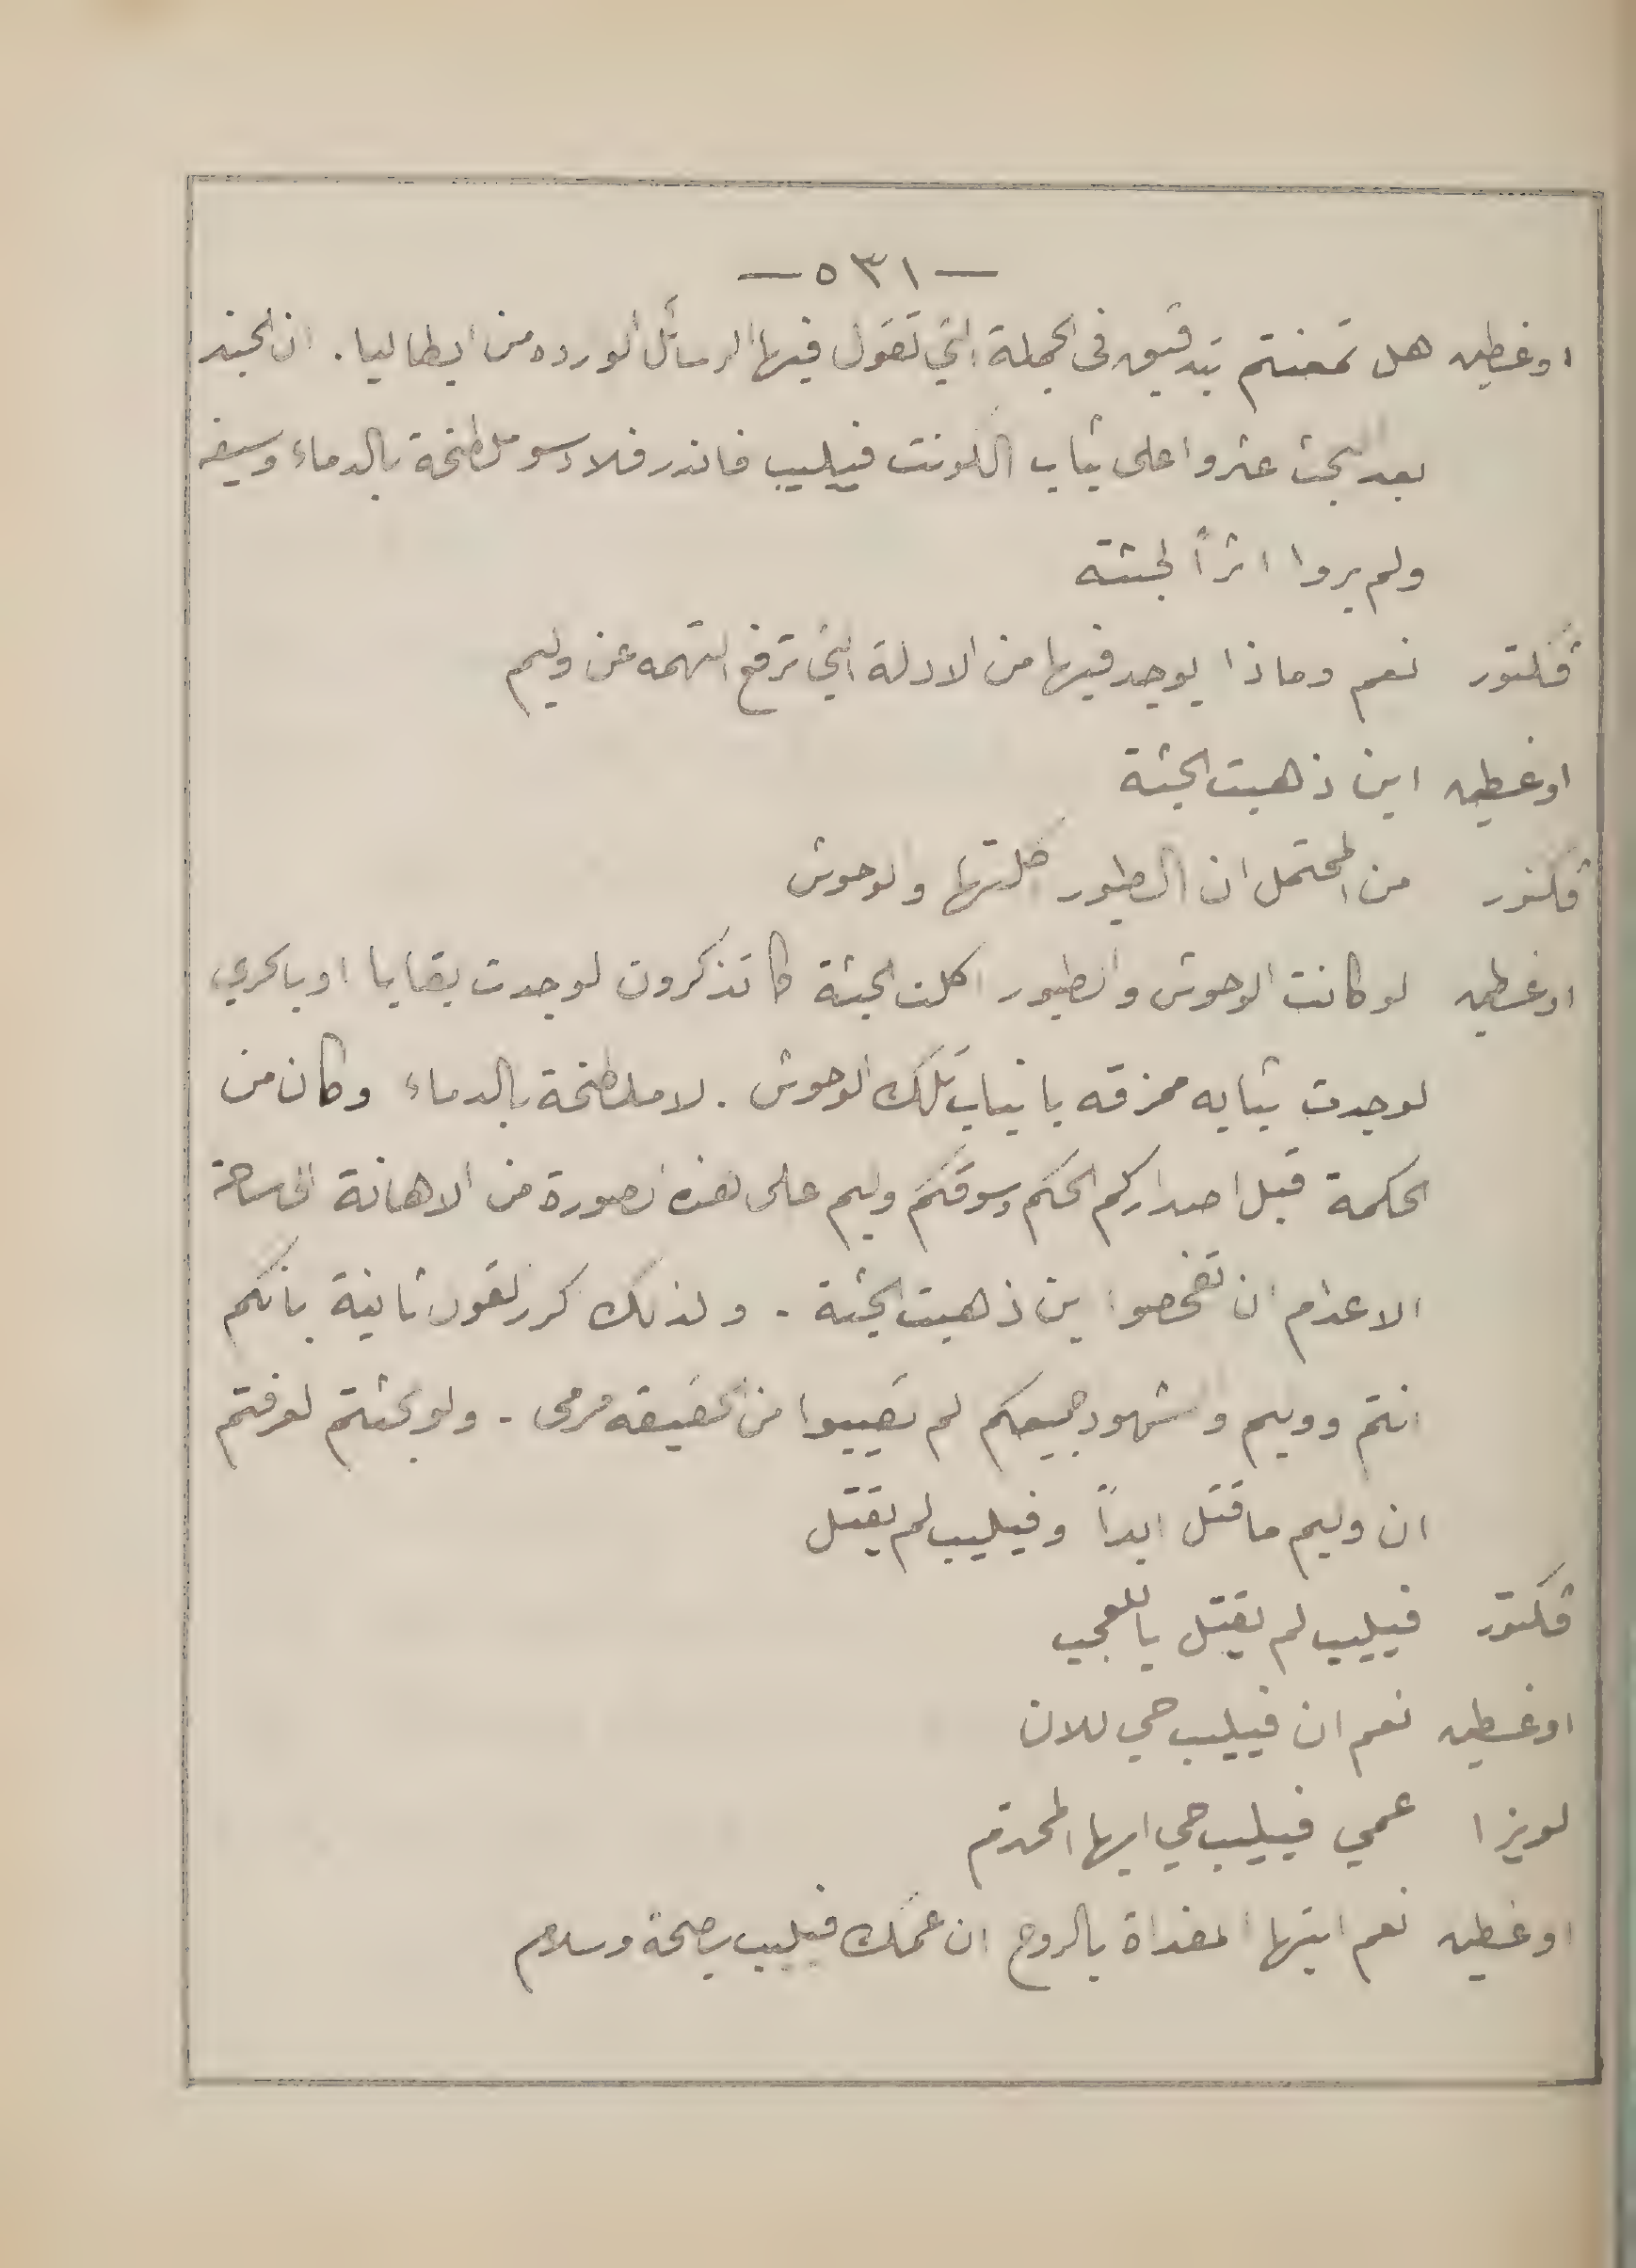 — ٥٣١ —
اوغسطين هل تمعنتم بتدقيق في الجملة التي تقول فيها الرسائل الوارده من ايطاليا . ان الجند
بعد البحث عثروا على ثياب الكونت فيليب فاندرفلاد سو ملطخة بالدماء وسيفه
ولم يروا اثراً لجثته
ڤكتور نعم وماذا يوجد فيها من الادلة التي ترفع التهمه عن وليم
اوغسطين اين ذهبت الجثة
ڤكتور من المحتمل ان الطيور اكلتها والوحوش
اوغسطين لو كانت الوحوش والطيور اكلت الجثة كما تذكرون لوجدت بقايا او بالحري
لوجدت ثيابه ممزقه بانياب تلك الوحوش . لا ملطخة بالدماء وكان من
الحكمة قبل اصداركم الحكم وسوقكم وليم على هذه الصورة من الاهانة الى ساحة
الاعدام ان تفحصوا اين ذهبت الجثة - ولذلك اكرر القول ثانية بانكم
انتم ووليم والشهود جميعكم لم تصيبوا من الحقيقه مرمى - ولو بحثتم لعرفتم
ان وليم ما قتل ابداً وفيليب لم يقتل
ڤكتور فيليب لم يقتل ياللعجب
اوغسطين نعم ان فيليب حي للان
لويزا عمي فيليب حي ايها المحترم
اوغسطين نعم ايتها المفداة بالروح ان عمك فيليب بصحة وسلام